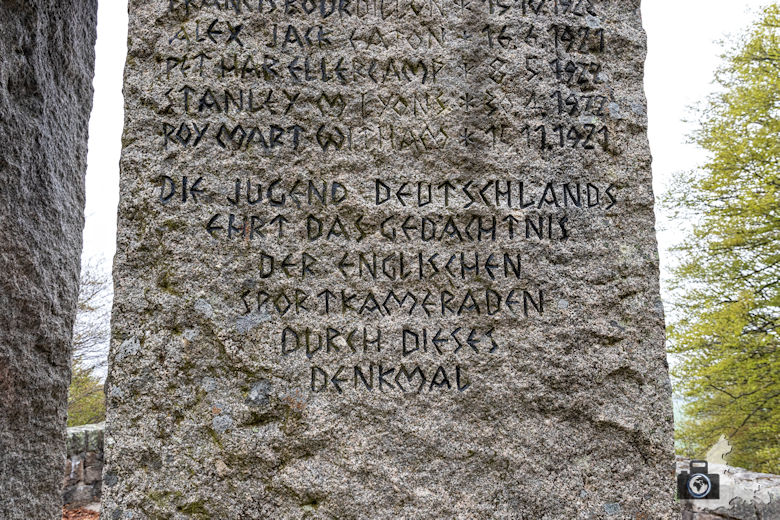 FRANCIS BOURDILLON * 15.10.1923
ALEX JACK EATON * 16.6.1921
PET HAR ELLERCAMP * 8.5.1922
STANLEY M LYONS * 5.4.1922
ROY MART WITHAMS * 11.11.1921
DIE JUGEND DEUTSCHLANDS
EHRT DAS GEDÄCHTNIS
DER ENGLISCHEN
SPORTKAMERADEN
DURCH DIESES
DENKMAL